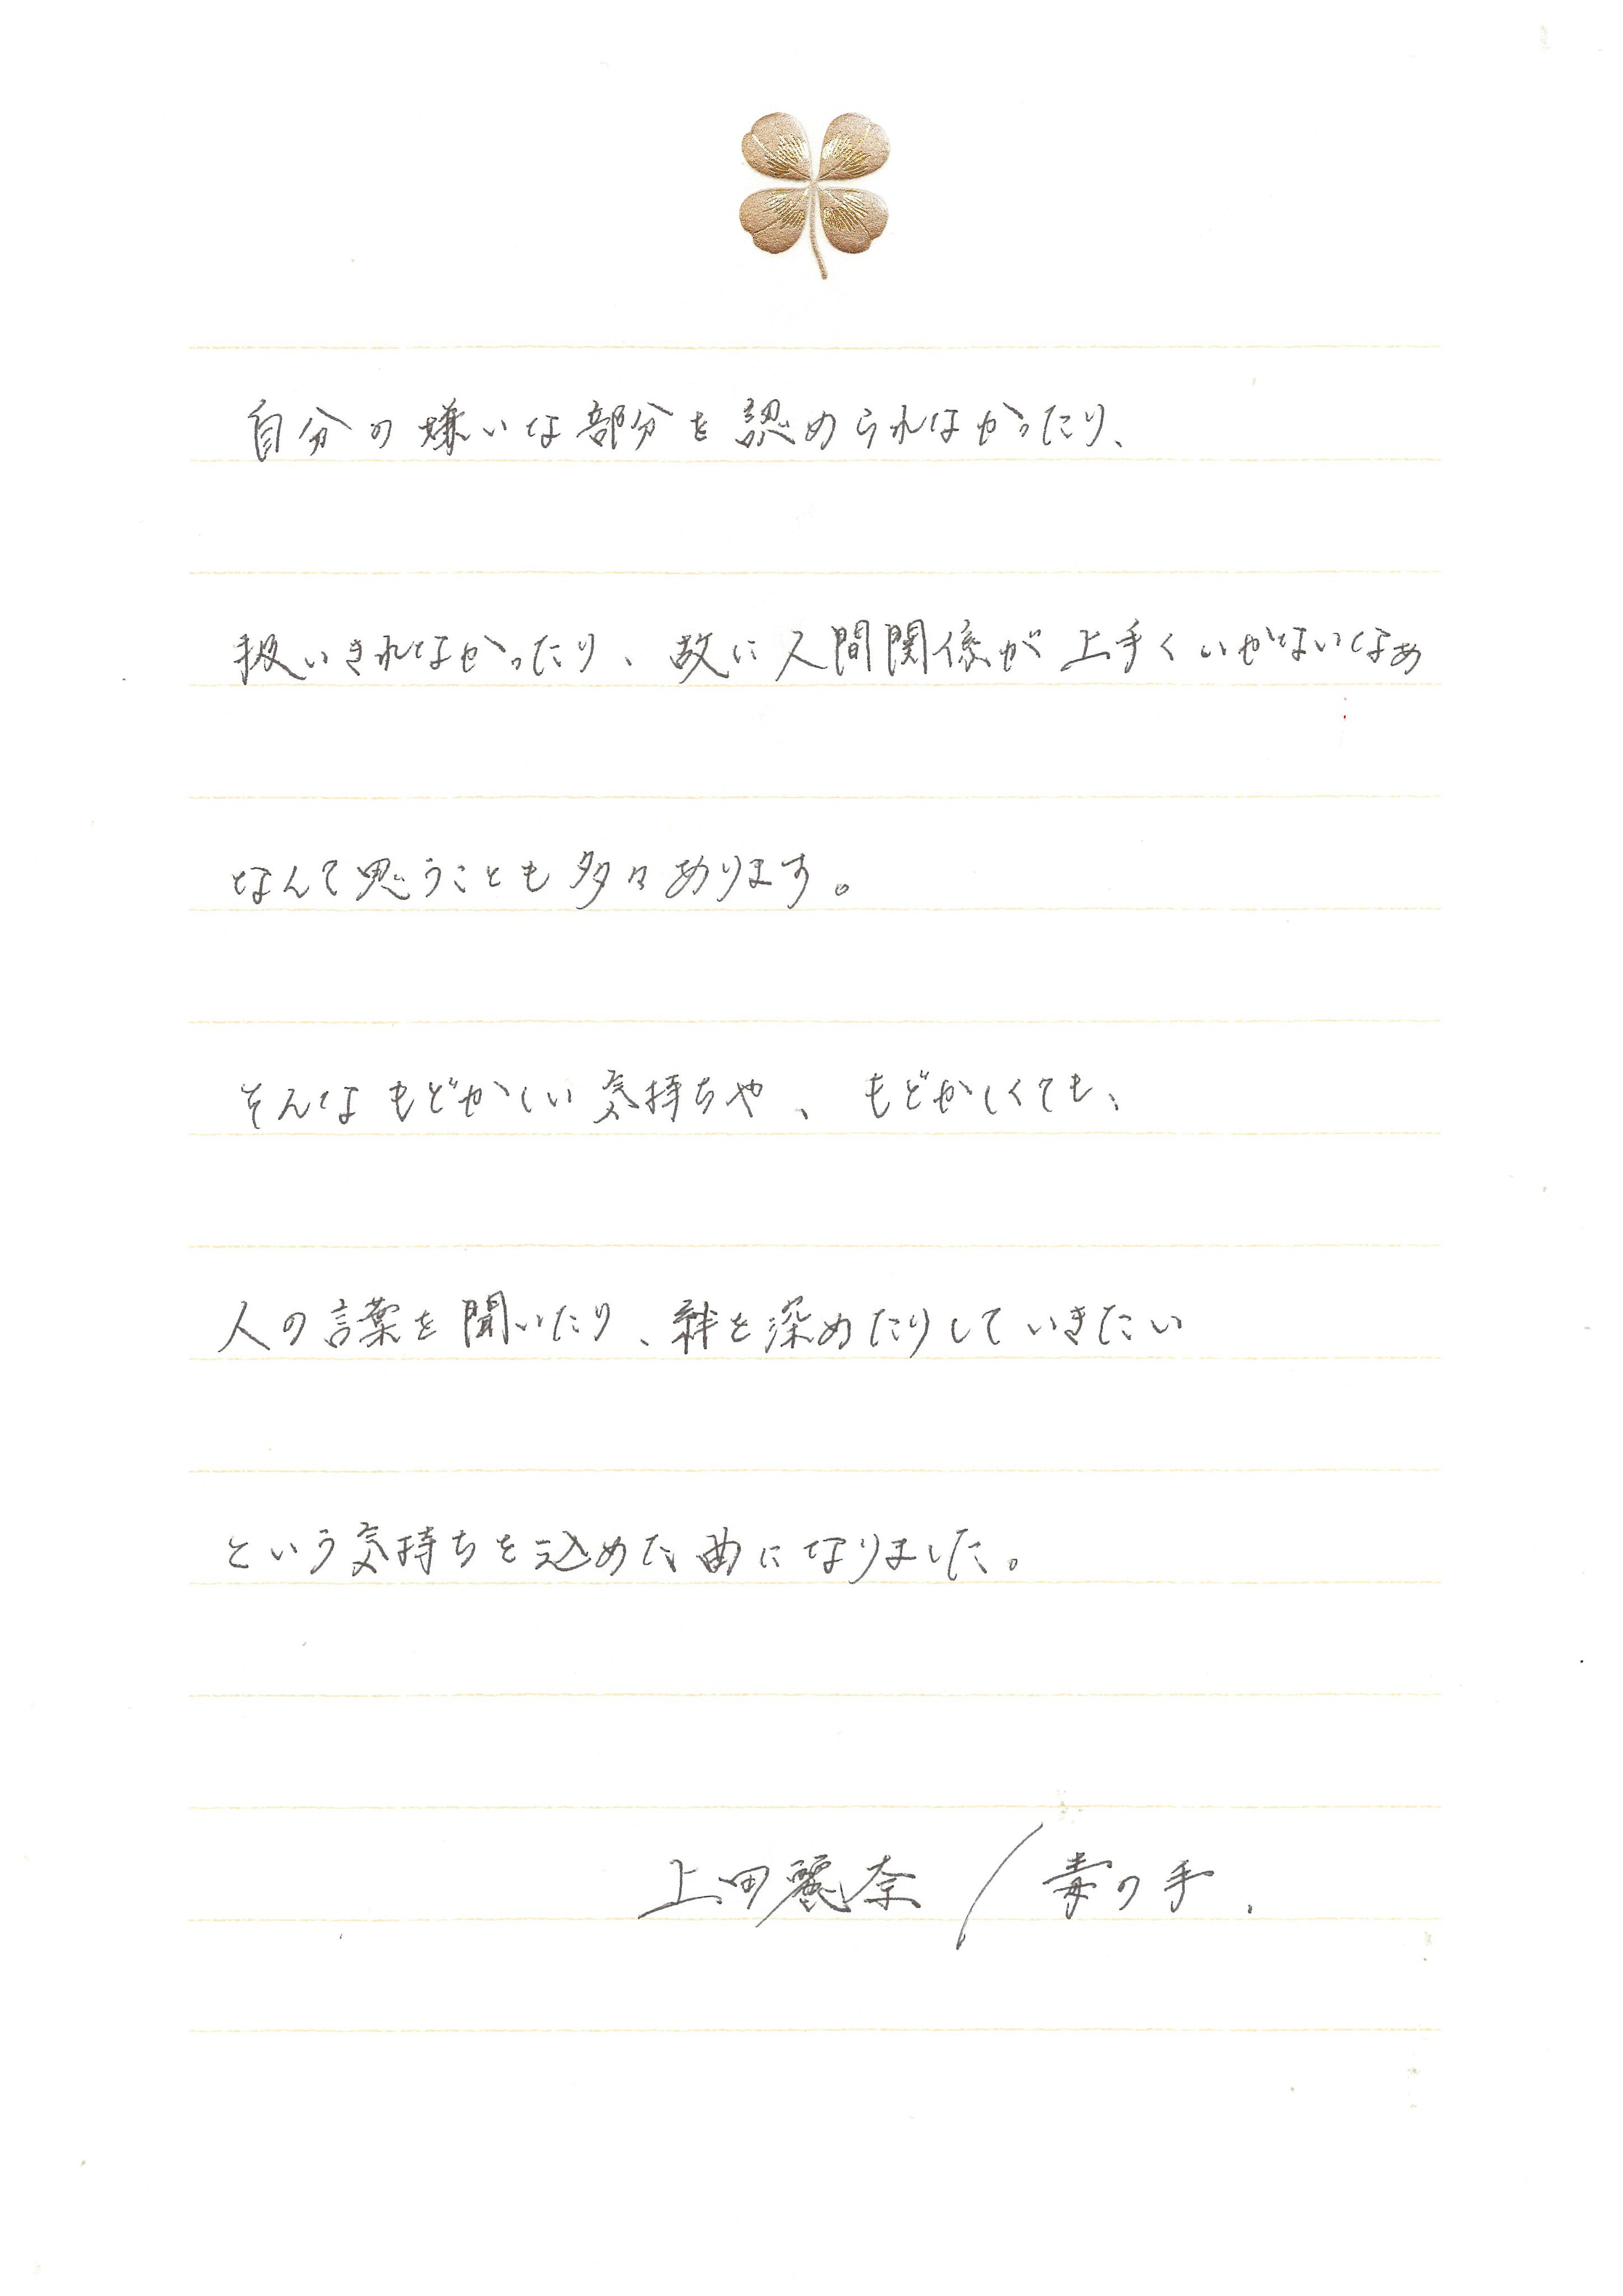 自分の嫌いな部分を認められなかったり、
扱いきれなかったり、故に人間関係が上手くいかないなぁ
なんて思うことも多々あります。
そんなもどかしい気持ちや、もどかしくても、
人の言葉を聞いたり、絆を深めたりしていきたい
という気持ちを込めた曲になりました。
上田麗奈/毒の手.